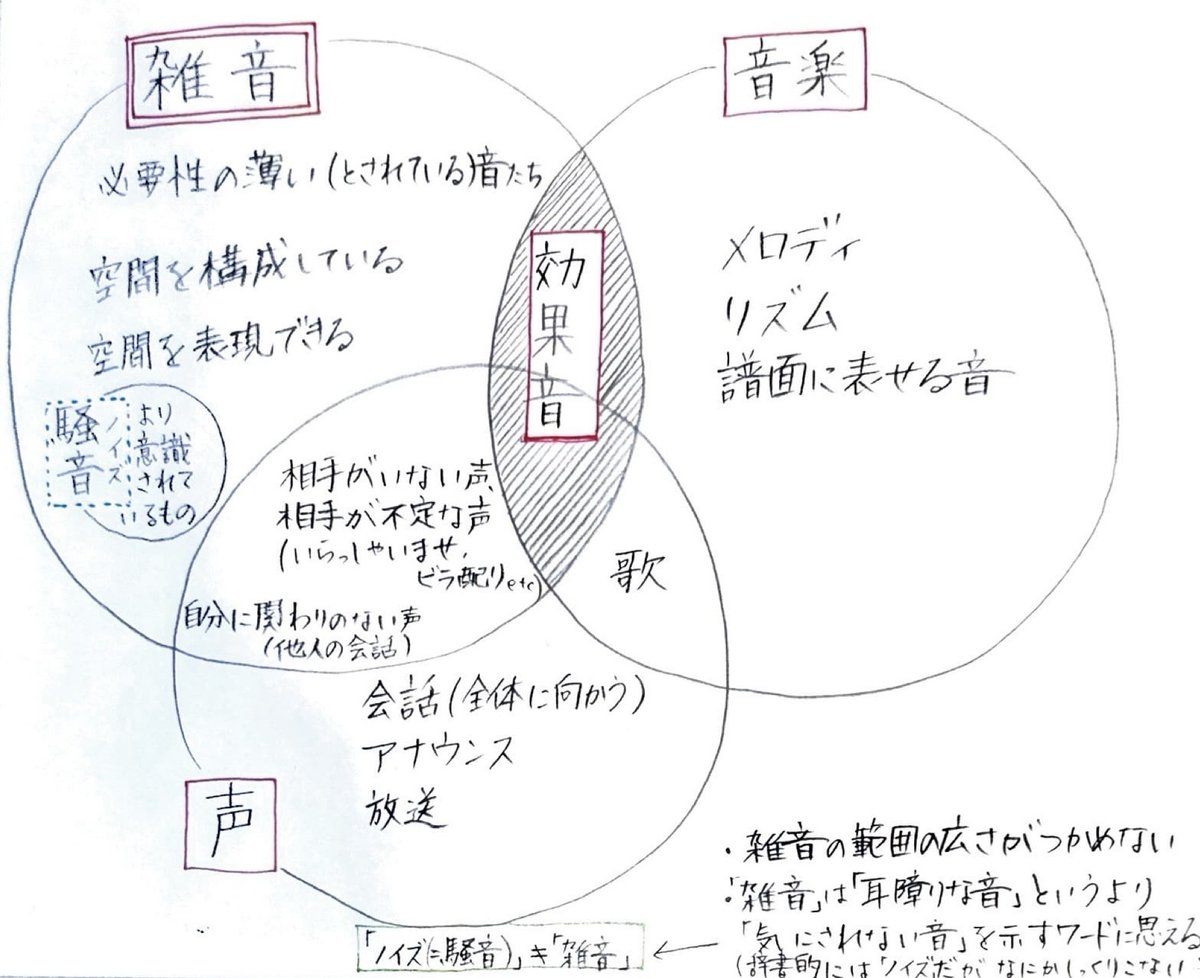 雑音
音楽
必要性の薄い(とされている)音たち
空間を構成している
空間を表現できる
騒音
ノイズ
より
意識
されて
いるもの
効果音
メロディ
リズム
譜面に表せる音
相手がいない声、
相手が不定な声
(いらっしゃいませ、
ビラ配りetc)
自分に関わりのない声
(他人の会話)
歌
会話(全体に向かう)
アナウンス
放送
声
・雑音の範囲の広さがつかめない
・「雑音」は「耳障りな音」というより
「気にされない音」を示すワードに思える
(辞書的には「ノイズ」だが、なにかしっくりこない
「ノイズ(≒騒音)」≠「雑音」